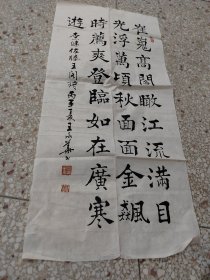 崔嵬高閣瞰江流滿目
光浮萬頃秋面面金飆
時薦爽登臨如在廣寒
遊